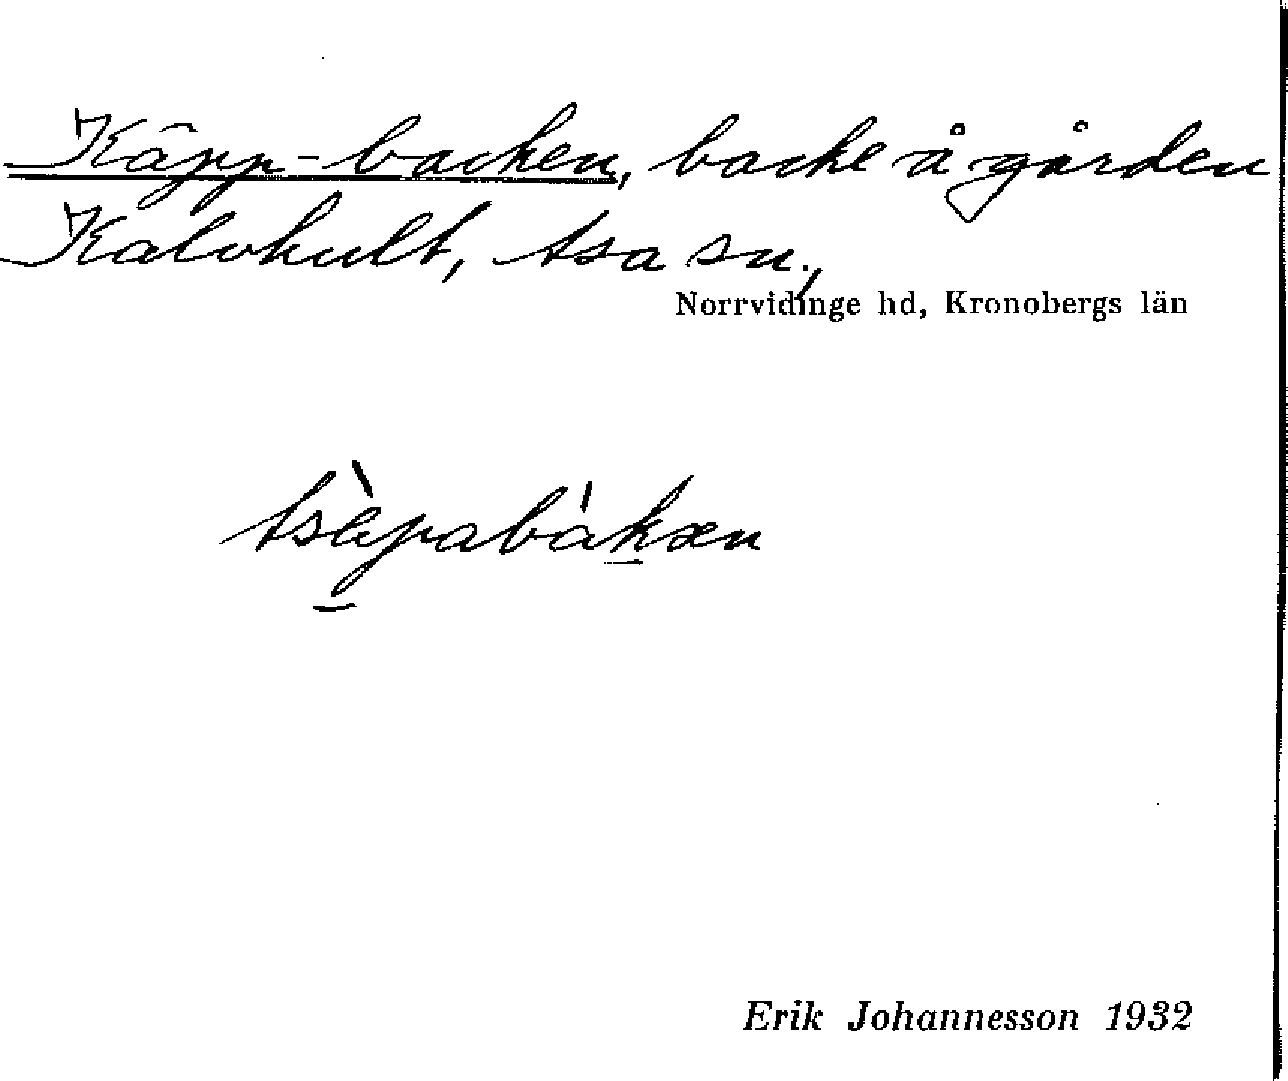 Käpp-backen, backe å gården
Kalvhult, tsa sn.,
Norrvidinge hd, Kronobergs län
tsàpabákæn
Erik Johannesson 1932